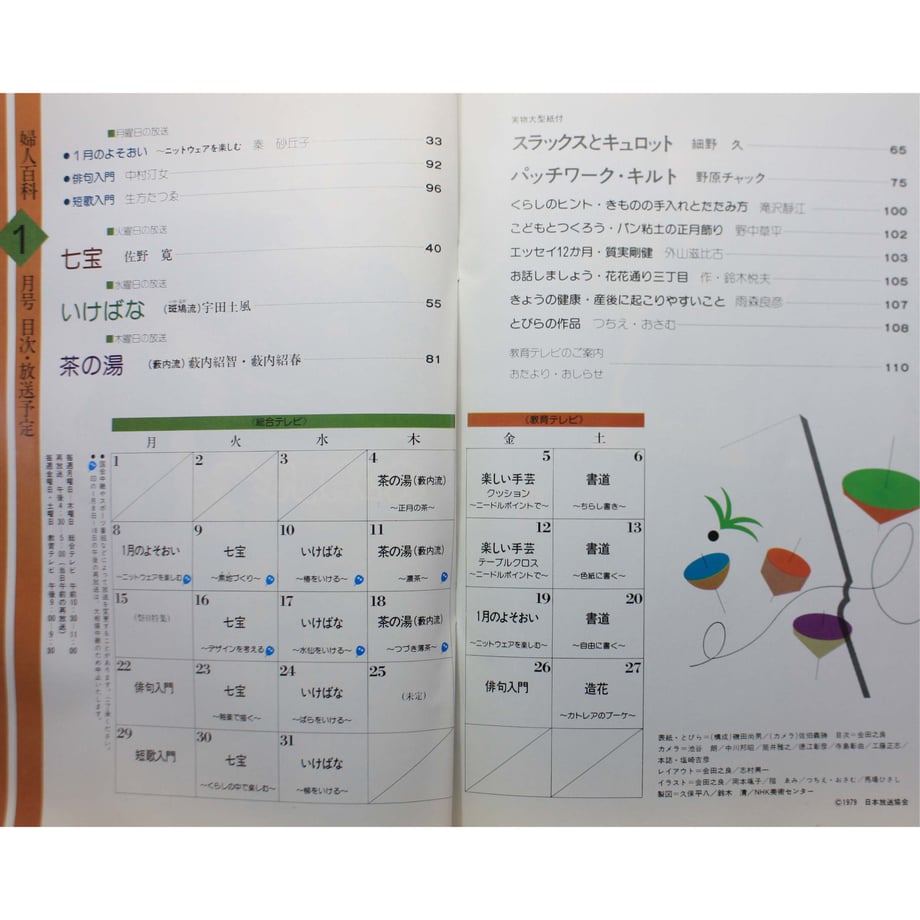 婦人百科
1
月号 目次・放送予定
■月曜日の放送
●1月のよそおい ～ニットウェアを楽しむ 秦 砂丘子 33
●俳句入門 中村汀女 92
●短歌入門 生方たつゑ 96
■火曜日の放送
七宝 佐野 寛 40
■水曜日の放送
いけばな (斑鳩流)宇田土風 55
■木曜日の放送
茶の湯 (藪内流)藪内紹智・藪内紹春 81
実物大型紙付
スラックスとキュロット 細野 久 65
パッチワーク・キルト 野原チャック 75
くらしのヒント・きものの手入れとたたみ方 滝沢静江 100
こどもとつくろう・パン粘土の正月飾り 野中草平 102
エッセイ12か月・質実剛健 外山滋比古 103
お話しましょう・花花通り三丁目 作・鈴木悦夫 105
きょうの健康・産後に起こりやすいこと 雨森良彦 107
とびらの作品 つちえ・おさむ 108
教育テレビのご案内
おたより・おしらせ 110
毎週月曜日―木曜日 総合テレビ 午前10:30―11:00
再放送 午後4:30―5:00(当日午前の再放送)
毎週金曜日・土曜日 教育テレビ 午後9:00―9:30
●国会中継やスポーツ番組などによって放送を変更することがあります。ご了承ください。
●印の1月8日―18日の午後の再放送は、大相撲中継のため中止いたします。
〈総合テレビ〉
月 火 水 木
1
2
3
4 茶の湯(藪内流)
～正月の茶～
8 1月のよそおい
～ニットウェアを楽しむ
9 七宝
～素地づくり～
10 いけばな
～椿をいける～
11 茶の湯(藪内流)
～濃茶～
15 (祭日特集)
16 七宝
～デザインを考える
17 いけばな
～水仙をいける～
18 茶の湯(藪内流)
～つづき薄茶～
22 俳句入門
23 七宝
～釉薬で描く～
24 いけばな
～ばらをいける～
25 (未定)
29 短歌入門
30 七宝
～くらしの中で楽しむ～
31 いけばな
～柳をいける～
〈教育テレビ〉
金 土
5 楽しい手芸
クッション
～ニードルポイントで～
6 書道
～ちらし書き～
12 楽しい手芸
テーブルクロス
～ニードルポイントで～
13 書道
～色紙に書く～
19 1月のよそおい
～ニットウェアを楽しむ～
20 書道
～自由に書く～
26 俳句入門
27 造花
～カトレアのブーケ～
表紙・とびら＝(構成)磯田尚男／(カメラ)佐畑義勝 目次＝会田之良
カメラ＝池谷 朗／中川邦昭／筒井雅之／徳江彰彦／寺島彰由／工藤正志／
本誌・塩崎吉彦
レイアウト＝会田之良／志村異一
イラスト＝会田之良／つちえ・おさむ／馬場ひさし
製図＝久保平八／鈴木 清／NHK美術センター
©1979 日本放送協会